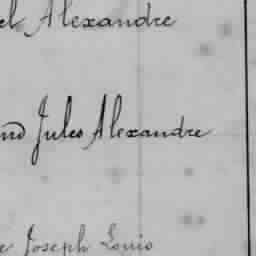 el Alexandre
nd Jules Alexandre
e Joseph Louis